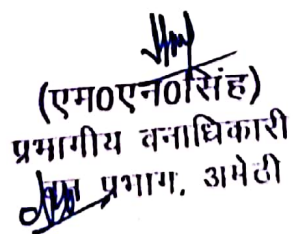 (एम0एन0सिंह)
प्रभागीय वनाधिकारी
प्रभाग, अमेठी